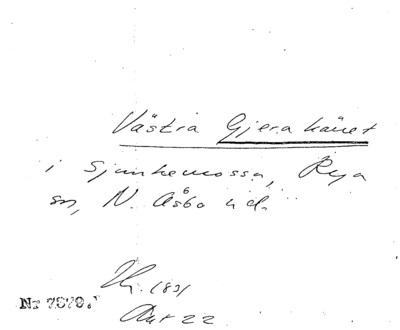 Västra Gjera käret
i Sjunkemossa, Rya
sn, N. Åsbo hd.
1831
Akt 22
Nr 7879.